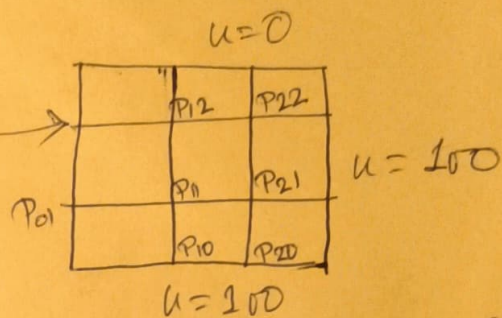 u=0
P12 P22
P11 P21 u = 100
P01
P10 P20
u = 100